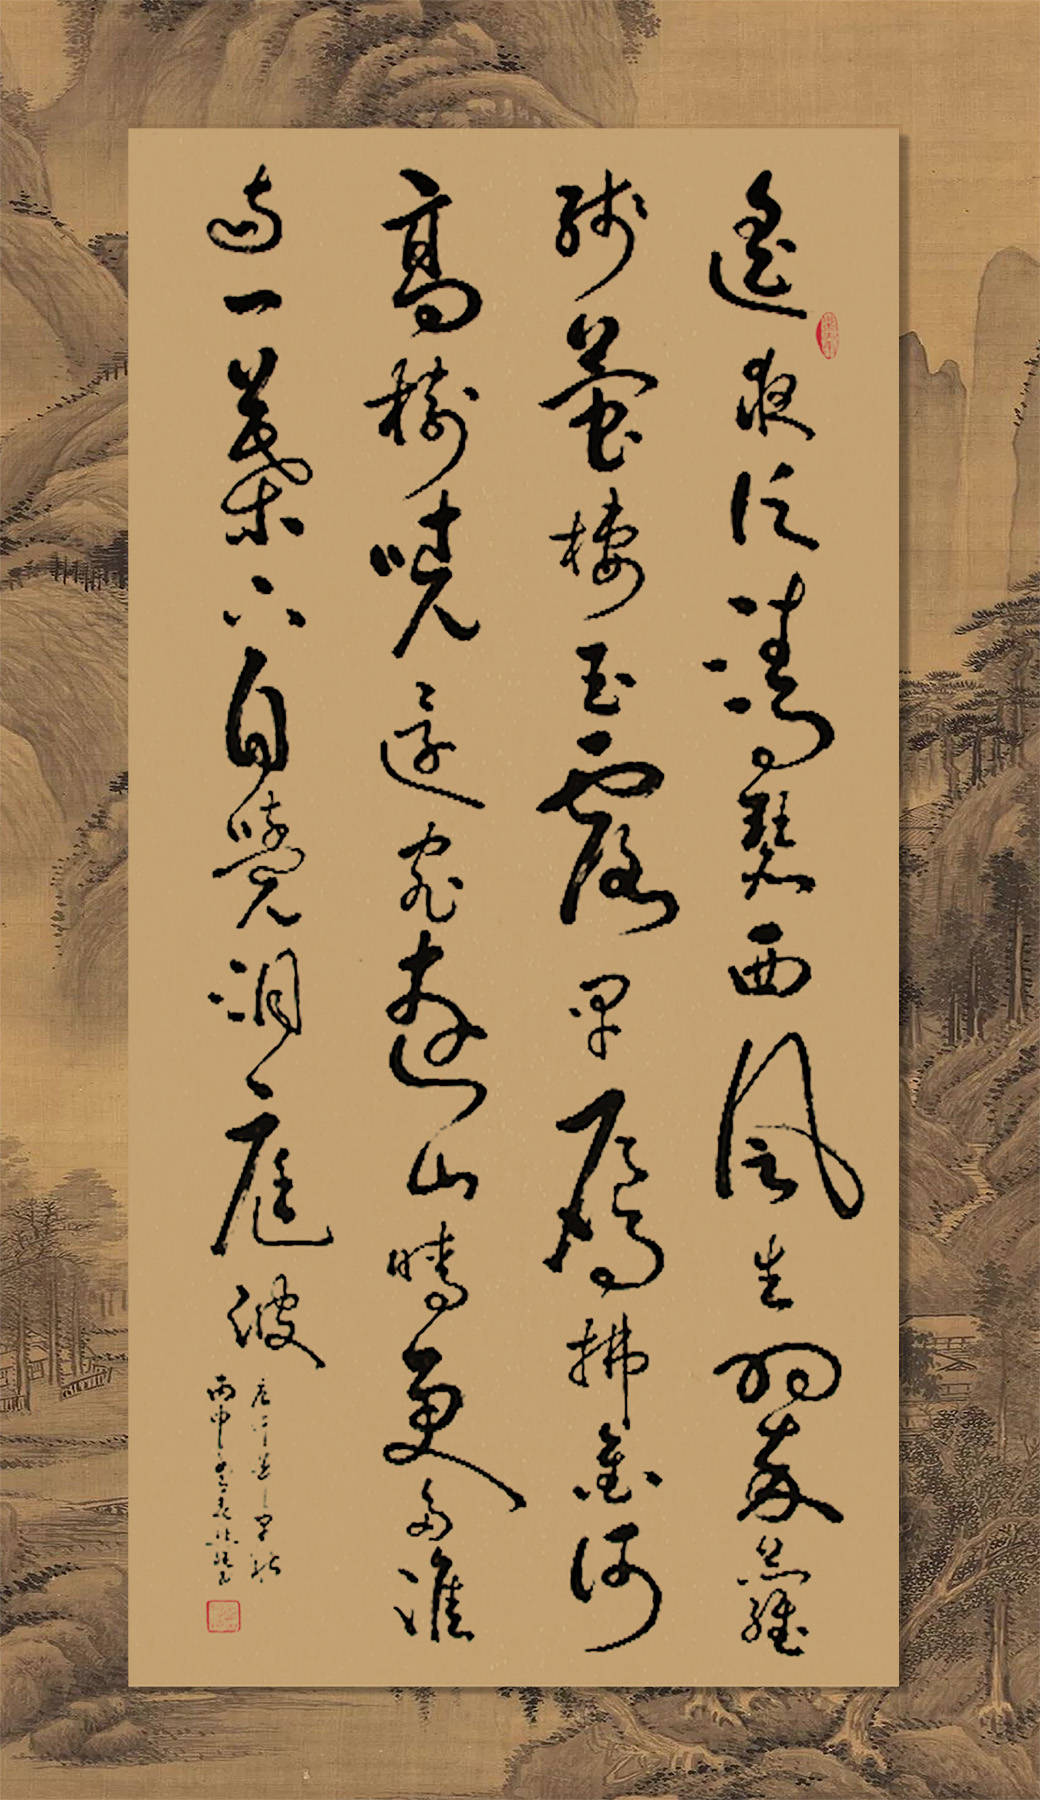 遙夜泛清瑟西風生翠蘿
殘螢棲玉露早鴈拂金河
高樹曉還密遠山晴更多淮
南一葉下自覺洞庭波
唐許渾早秋
丙申